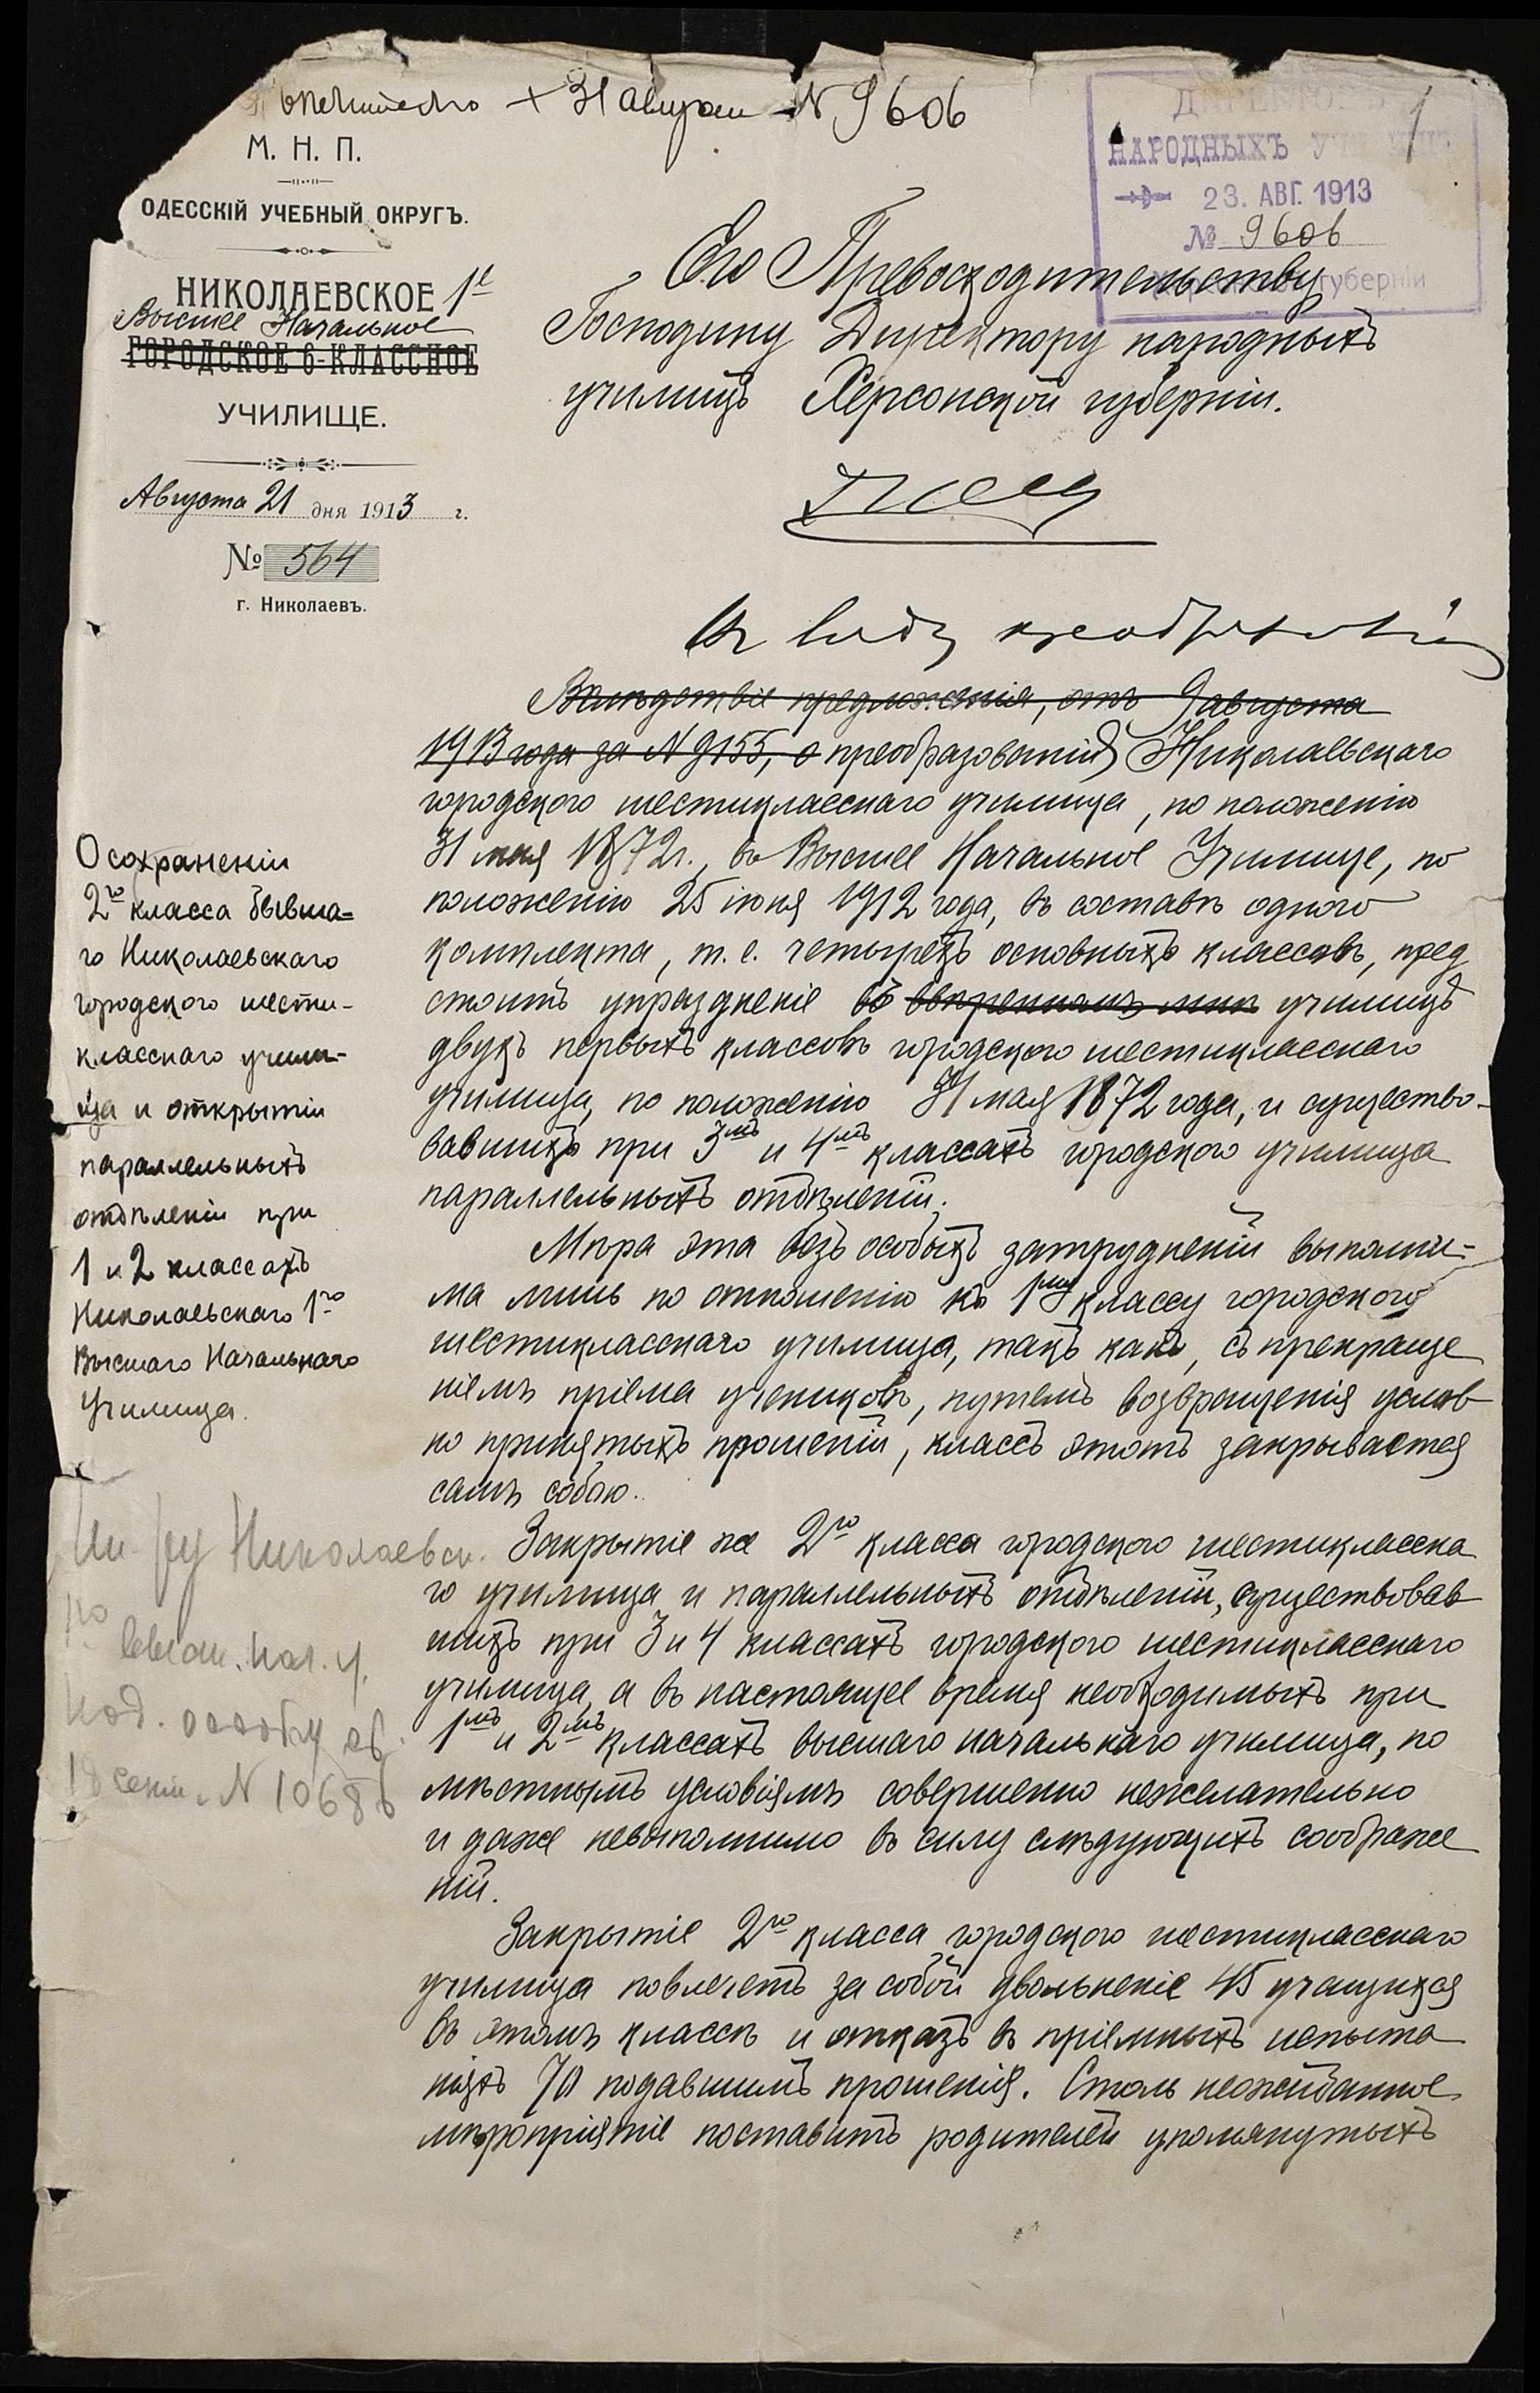 Попечителю + 31 августа № 9606
ДИРЕКТОРЪ
НАРОДНЫХЪ УЧИЛИЩЪ
23. АВГ. 1913
№ 9606
губерніи
1
М. Н. П.
ОДЕССКІЙ УЧЕБНЫЙ ОКРУГЪ.
НИКОЛАЕВСКОЕ 1е
Высшее Начальное
ГОРОДСКОЕ 6-КЛАССНОЕ
УЧИЛИЩЕ.
Августа 21 дня 1913 г.
№ 564
г. Николаевъ.
Его Превосходительству
Господину Директору народныхъ
училищъ Херсонской губерніи.
Въ виду преобразованія
Вслѣдствіе предложенія, отъ 9 августа
1913 года за N 9155, о преобразованіи Николаевскаго
городского шестикласснаго училища, по положенію
31 мая 1872 г., въ Высшее Начальное Училище, по
положенію 25 іюня 1912 года, въ составѣ одного
комплекта, т. е. четырехъ основныхъ классовъ, пред
стоитъ упраздненіе въ ввѣренномъ мнѣ училищѣ
двухъ первыхъ классовъ городского шестикласснаго
училища, по положенію 31 мая 1872 года, и существо-
вавшихъ при 3мъ и 4мъ классахъ городского училища
параллельныхъ отдѣленій.
Мѣра эта безъ особыхъ затрудненій выполни-
ма лишь по отношенію къ 1му классу городского
шестикласснаго училища, такъ какъ, съ прекраще
ніемъ пріема учениковъ, путемъ возвращенія услов
но принятыхъ прошеній, классъ этотъ закрывается
самъ собою.
Закрытіе же 2го класса городского шестикласска
го училища и параллельныхъ отдѣленій, существовав
шихъ при 3 и 4 классахъ городского шестикласснаго
училища, а въ настоящее время необходимыхъ при
1мъ и 2мъ классахъ высшаго начальнаго училища, по
мѣстнымъ условіямъ совершенно нежелательно
и даже невыполнимо въ силу слѣдующихъ соображе
ній.
Закрытіе 2го класса городского шестикласснаго
училища повлечетъ за собой увольненіе 45 учащихся
въ этомъ классѣ и отказъ въ пріемныхъ испыта
ніяхъ 70 подавшимъ прошенія. Столь неожиданное
мѣропріятіе поставитъ родителей упомянутыхъ
О сохраненіи
2го класса бывша=
го Николаевскаго
городского шести-
класснаго учили-
ща и открытіи
параллельныхъ
отдѣленій при
1 и 2 классахъ
Николаевскаго 1го
Высшаго Начальнаго
Училища.
Николаевск.
1го высш. нач. у.
18 сент. N 10686